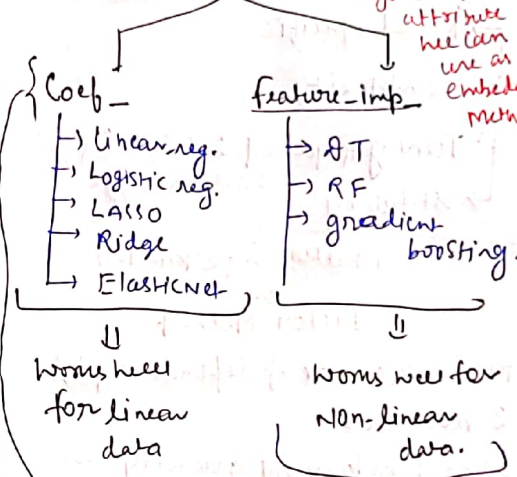 attribute
we can
use as
embed
Meth
Coef_
Linear reg.
Logistic reg.
LASSO
Ridge
ElasticNet
works well
for linear
data
feature_imp_
DT
RF
gradient
boosting.
works well for
NON-linear
data.